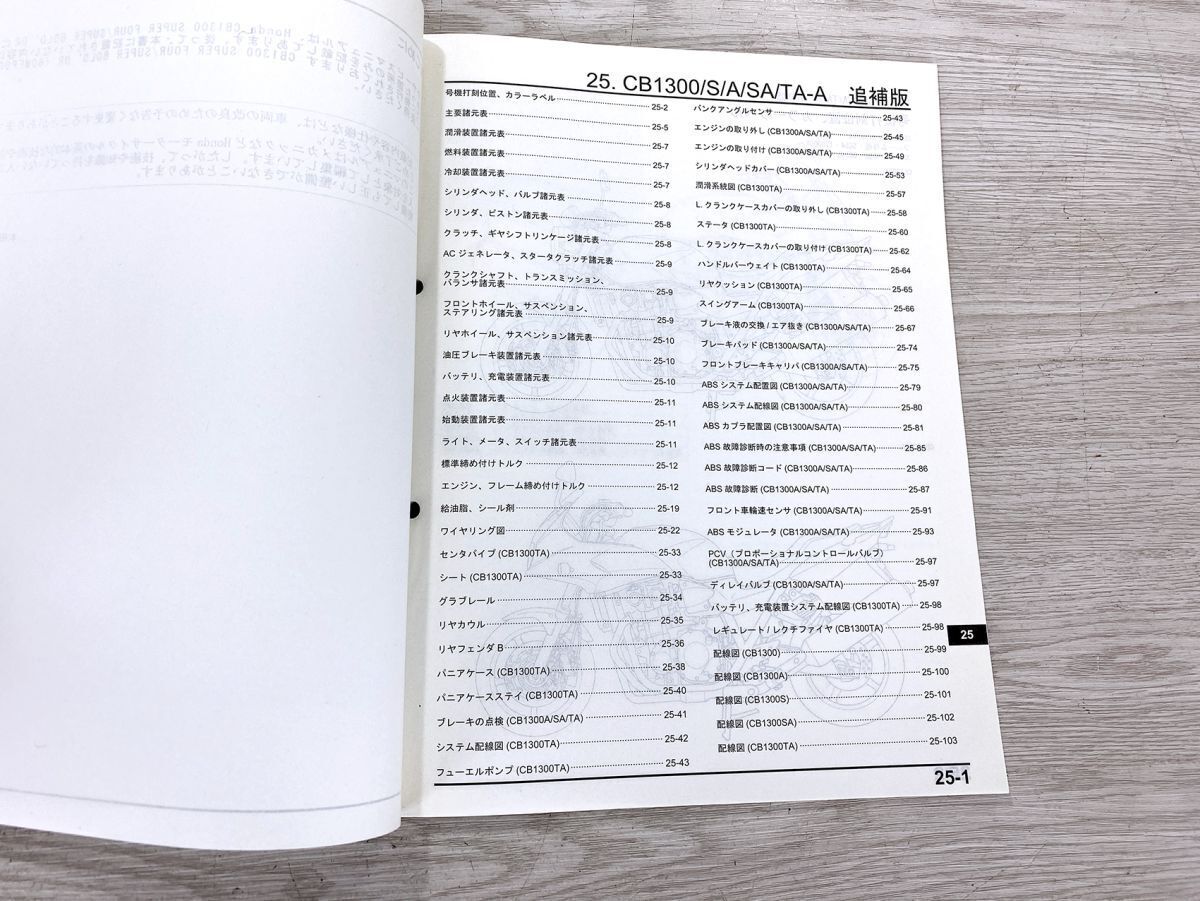 25. CB1300/S/A/SA/TA-A 追補版
号機打刻位置、カラーラベル 25-2
主要諸元表 25-5
潤滑装置諸元表 25-7
燃料装置諸元表 25-7
冷却装置諸元表 25-7
シリンダヘッド、バルブ諸元表 25-8
シリンダ、ピストン諸元表 25-8
クラッチ、ギヤシフトリンケージ諸元表 25-8
AC ジェネレータ、スタータクラッチ諸元表 25-9
クランクシャフト、トランスミッション、
バランサ諸元表 25-9
フロントホイール、サスペンション、
ステアリング諸元表 25-9
リヤホイール、サスペンション諸元表 25-10
油圧ブレーキ装置諸元表 25-10
バッテリ、充電装置諸元表 25-10
点火装置諸元表 25-11
始動装置諸元表 25-11
ライト、メータ、スイッチ諸元表 25-11
標準締め付けトルク 25-12
エンジン、フレーム締め付けトルク 25-12
給油脂、シール剤 25-19
ワイヤリング図 25-22
センタパイプ (CB1300TA) 25-33
シート (CB1300TA) 25-33
グラブレール 25-34
リヤカウル 25-35
リヤフェンダ B 25-36
パニアケース (CB1300TA) 25-38
パニアケースステイ (CB1300TA) 25-40
ブレーキの点検 (CB1300A/SA/TA) 25-41
システム配線図 (CB1300TA) 25-42
フューエルポンプ (CB1300TA) 25-43
バンクアングルセンサ 25-43
エンジンの取り外し (CB1300A/SA/TA) 25-45
エンジンの取り付け (CB1300A/SA/TA) 25-49
シリンダヘッドカバー (CB1300A/SA/TA) 25-53
潤滑系統図 (CB1300TA) 25-57
L. クランクケースカバーの取り外し (CB1300TA) 25-58
ステータ (CB1300TA) 25-60
L. クランクケースカバーの取り付け (CB1300TA) 25-62
ハンドルバーウェイト (CB1300TA) 25-64
リヤクッション (CB1300TA) 25-65
スイングアーム (CB1300TA) 25-66
ブレーキ液の交換 / エア抜き (CB1300A/SA/TA) 25-67
ブレーキパッド (CB1300A/SA/TA) 25-74
フロントブレーキキャリパ (CB1300A/SA/TA) 25-75
ABS システム配置図 (CB1300A/SA/TA) 25-79
ABS システム配線図 (CB1300A/SA/TA) 25-80
ABS カプラ配置図 (CB1300A/SA/TA) 25-81
ABS 故障診断時の注意事項 (CB1300A/SA/TA) 25-85
ABS 故障診断コード (CB1300A/SA/TA) 25-86
ABS 故障診断 (CB1300A/SA/TA) 25-87
フロント車輪速センサ (CB1300A/SA/TA) 25-91
ABS モジュレータ (CB1300A/SA/TA) 25-93
PCV（プロポーショナルコントロールバルブ）
(CB1300A/SA/TA) 25-97
ディレイバルブ (CB1300A/SA/TA) 25-97
バッテリ、充電装置システム配線図 (CB1300TA) 25-98
レギュレート / レクチファイヤ (CB1300TA) 25-98
配線図 (CB1300) 25-99
配線図 (CB1300A) 25-100
配線図 (CB1300S) 25-101
配線図 (CB1300SA) 25-102
配線図 (CB1300TA) 25-103
25
25-1